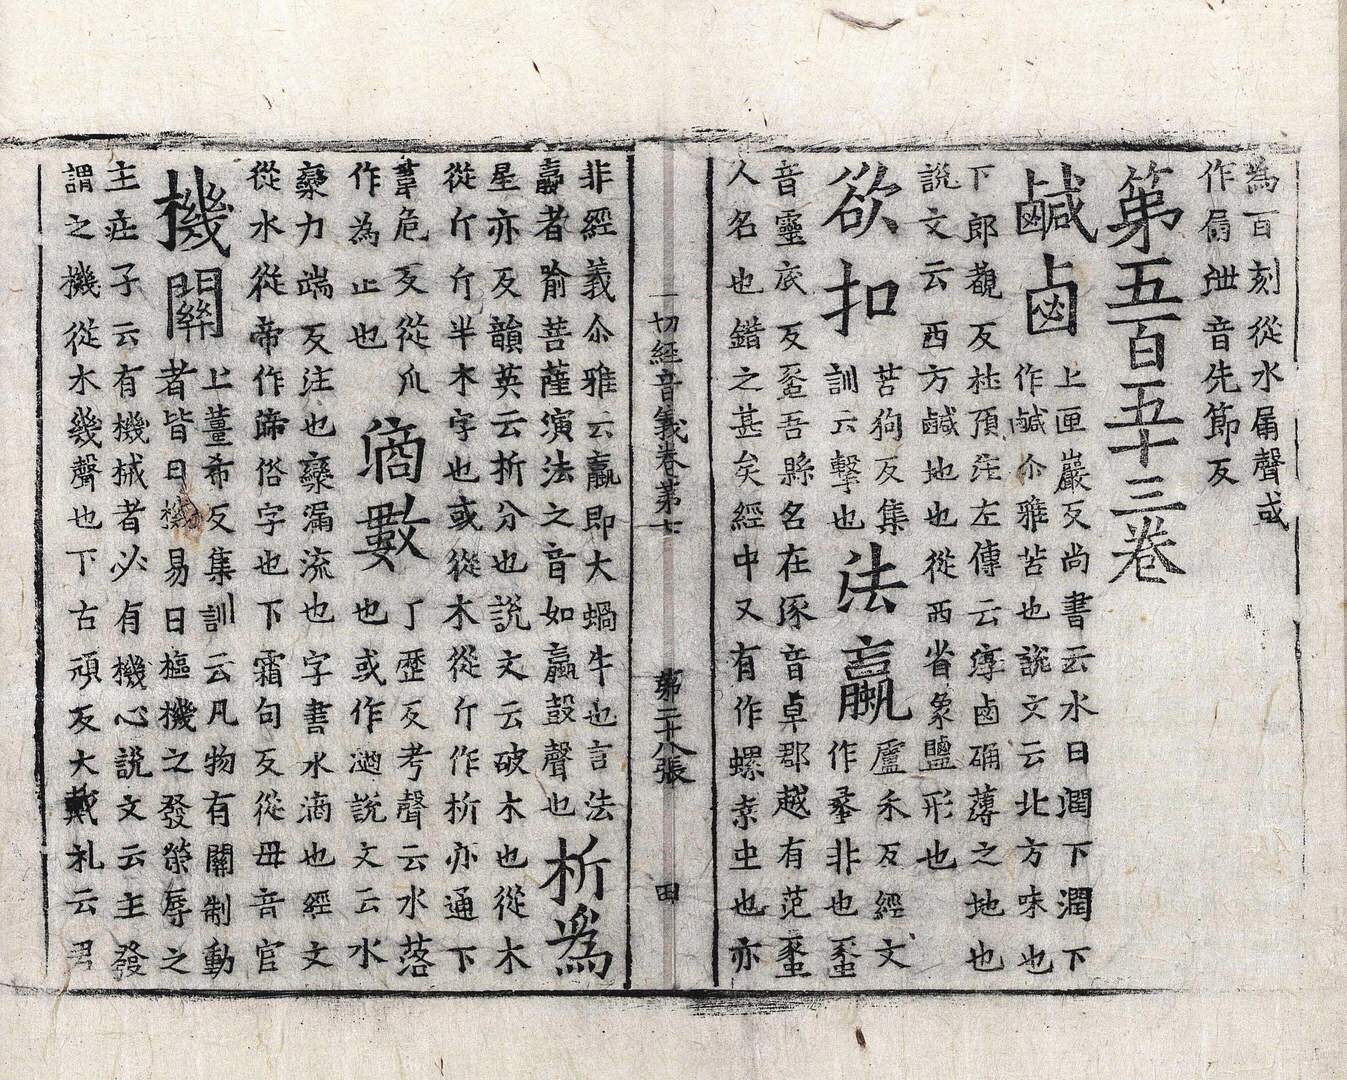 為百刻從水屚聲或
作屚泄音先節反
第五百五十三卷
鹹鹵上匣巖反尚書云水曰潤下潤下
作鹹尒雅苦也說文云北方味也
下郎覩反杜預注左傳云淳鹵确薄之地也
說文云西方鹹地也從西省象鹽形也
欲扣苦狗反集
訓云擊也
法蠃盧禾反經文
作蠡非也蠡
音靈底反蠡吾縣名在涿音卓郡越有范蠡
人名也錯之甚矣經中又有作螺虫也亦
一切經音義卷第七 第二十八張 田
非經義尒雅云蠃即大蝸牛也言法
蠃者喻菩薩演法之音如蠃鼓聲也
析爲
星亦反韻英云析分也說文云破木也從木
從斤斤半木字也或從木從斤作枂亦通下
葦危反從爪
作為止也
滴數丁歷反考聲云水落
也或作適說文云水
欒力端反注也欒漏流也字書水滴也經文
從水從帝作渧俗字也下霜句反從毋音官
機關上薑希反集訓云凡物有關制動
者皆曰機易曰樞機之發榮辱之
主莊子云有機械者必有機心說文云主發
謂之機從木幾聲也下古頑反大戴礼云君